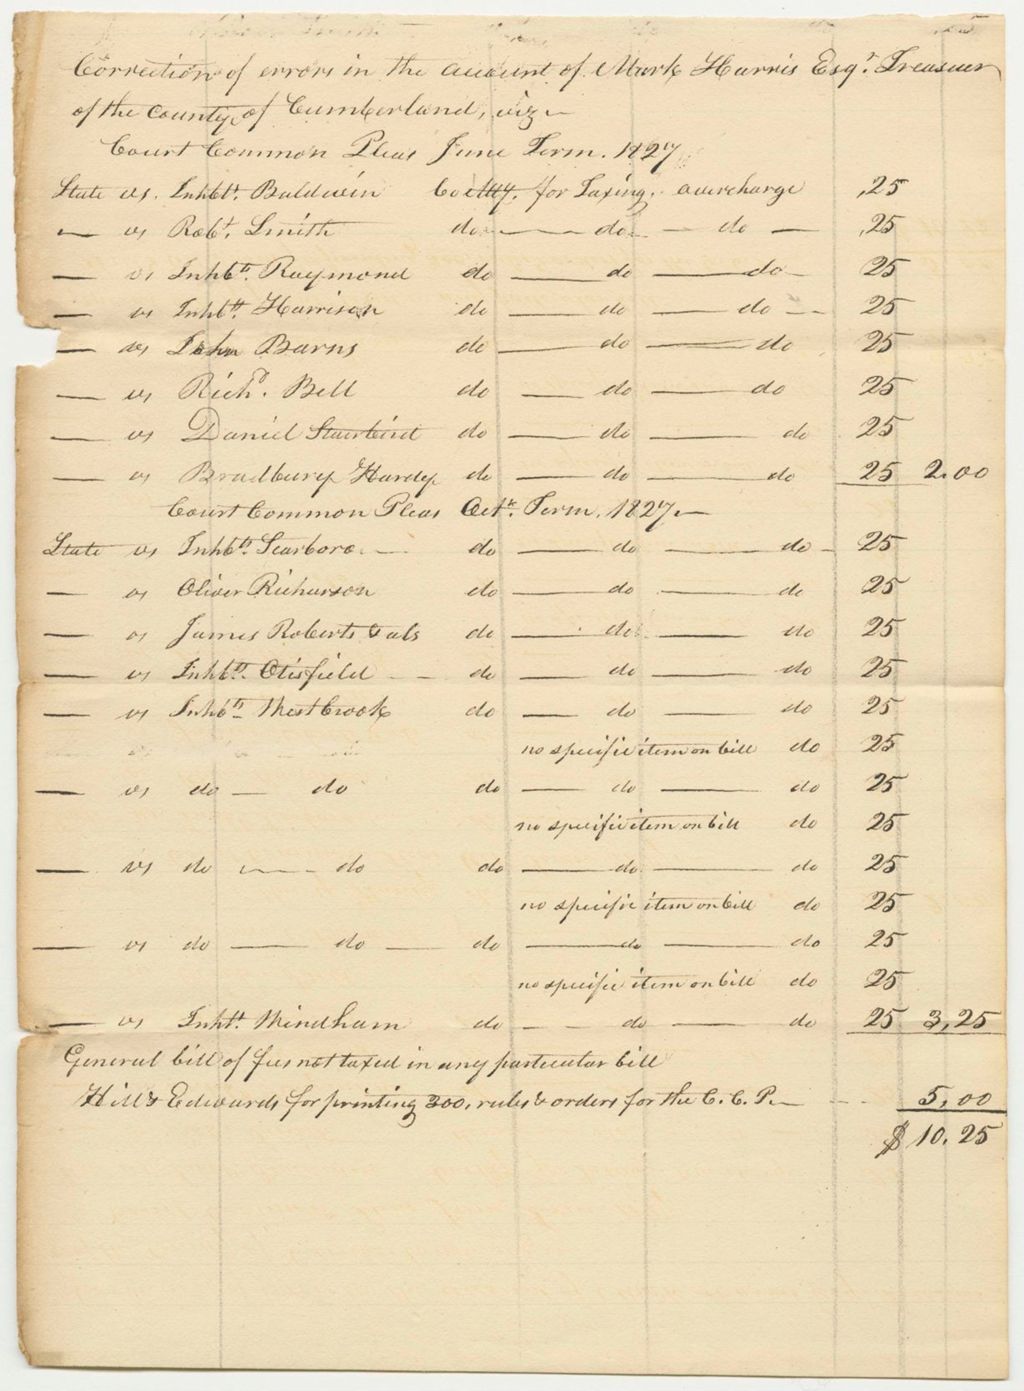 Correction of errors in the account of Mark Harris Esqr. Treasurer
of the County of Cumberland, viz
Court Common Pleas June Term. 1827
State vs. Inhbts. Baldwin Co Atty. for Taxing. overcharge ,25
— vs Robt. Smith do — do — do — ,25
— vs Inhbts. Raymond do — do — do 25
— vs Inhbts. Harrison do — do — do 25
— vs John Barns do — do — do 25
— vs Richd. Bell do — do — do 25
— vs Daniel Starbird do — do — do 25
— vs Bradbury Hardy do — do — do 25 2.00
Court Common Pleas Octr. Term. 1827
State vs Inhbts. Scarboro do — do — do 25
— vs Oliver Richarson do — do — do 25
— vs James Roberts & als do — do — do 25
— vs Inhbts. Otisfield do — do — do 25
— vs Inhbts Westbrook do — do — do 25
no specific item on bill do 25
— vs do — do do — do — do 25
no specific item on bill do 25
— vs do — do do — do — do 25
no specific item on bill do 25
— vs do — do — do — do — do 25
no specific item on bill do 25
— vs Inhbts. Windham do — do — do 25 3,25
General bill of fees not taxed in any particular bill
Hill & Edwards for printing 300, rules & orders for the C. C. P. 5,00
$ 10.25